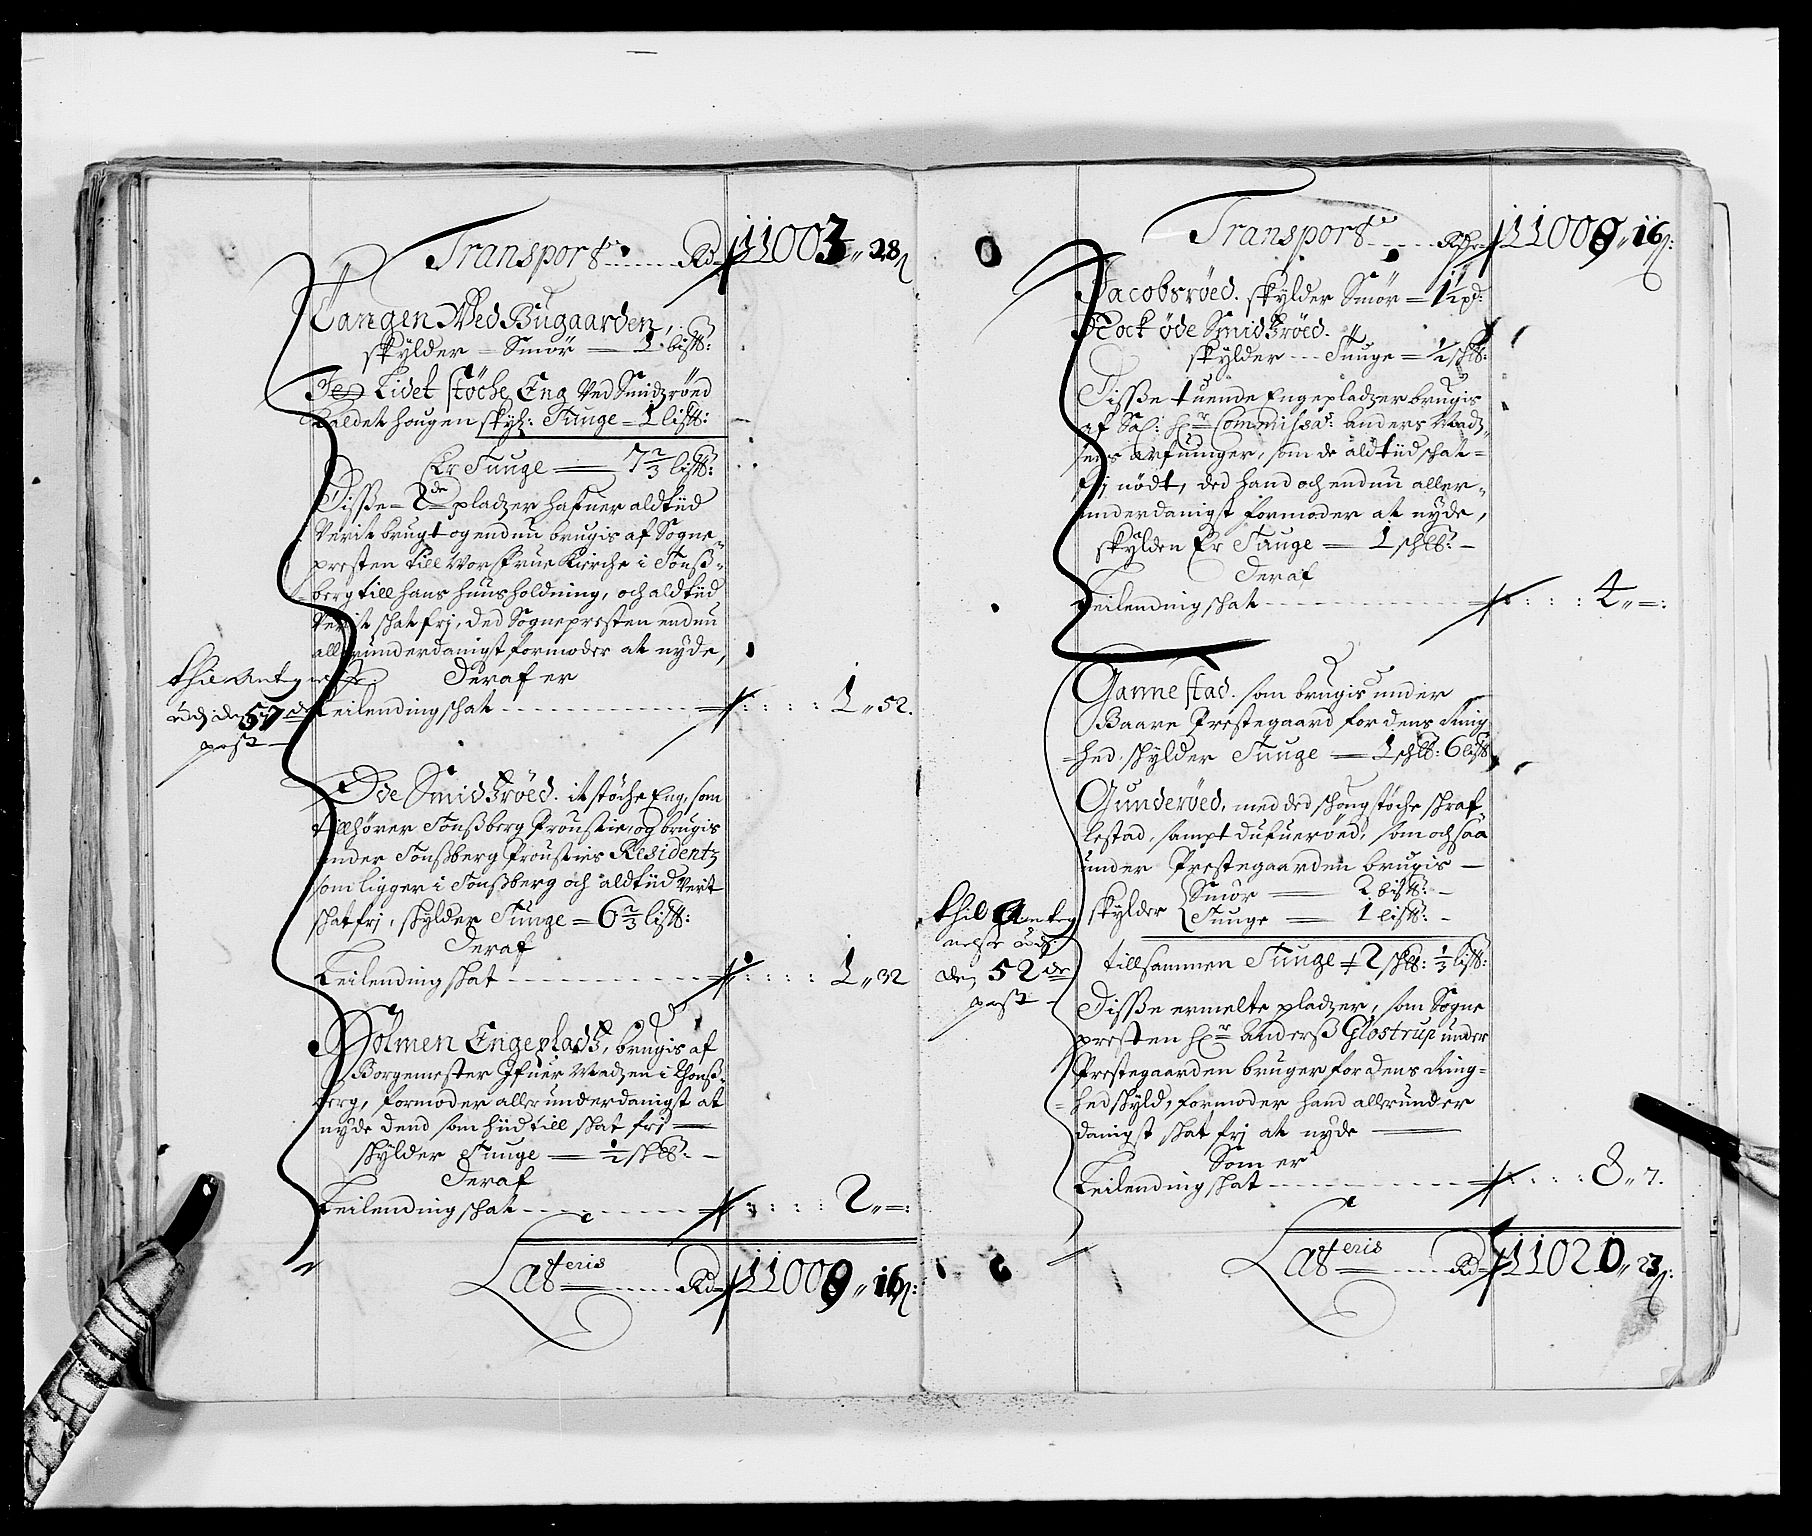 Transport ...... Rd 11003 „ 28ß
Tangen Ved Bugaarden,
skylder = Smör — 1 bißl:
Jt Lidet støche Eng Ved Smidzrøed
kaldet hougen skyl: Tunge = 1 lißl:
Er Tunge — 7 2/3 lißl:
Disse 2de pladzer hafuer aldtiid
Verit brugt og endnu brugis af Sogne-
presten till Vor frue Kirche i Tonß-
berg till hans huusholdning, och aldtiid
Verit skatfrj, ded Sognepresten endnu
allerunderdanigst formoder at nyde,
Deraf er
Leilendingskat ---- 1 „ 52.
57 de
post
Øde Smidzrøed. it støche Eng, som
tillhører Tonßberg Proustie, og brugis
under Tonßberg Prousties Residentz
som ligger i Tonßberg och aldtiid Verit
skatfrj, skylder Tunge = 6 2/3 lißl:
Deraf
Leilendingskat ---- 1 „ 32
Holmen Engepladz, brugis af
Borgemester Ifuer Madzen i Thonß-
berg, formoder allerunderdanigst at
nyde dend som hiidtill skat frj —
skylder Tunge — 1/2 skß: —
Deraf
Leilendingskat ---- 2 „ =:
Lateris ...... Rd 11009 „ 16ß:
Transport ...... Rdr 11009 „ 16ß:
Jacobsrøed. skylder Smör = 1 1/2 pd:
Nock øde Smidzrøed.
skylder --- Tunge = 1/2 skß:
Disse tuende Engepladzer brugis
af Sal: Hr Commisær: Anders Mad-
sens arfuinger, som de aldtiid skat=
frj nødt, ded hand och endnu aller-
underdanigst formoder at nyde,
skylden Er Tunge — 1 skß: —
Deraf
Leilendingskat ---- 4 „ =:
Gannestad. som brugis under
Baare Prestegaard for dens Ring
hed skylder Tunge — 1 skß: 6 lißl
Gunderøed, med ded skougstøche skraf
lestad, sampt dufuerøed, som och saa
under Prestegaarden brugis —
skylder Smör — 2 bißl: —
Tunge — 1 lißl: —
tillsammen Tunge 2 skß: 1/3 lißl:
den 52 de
post
Disse ermelte pladzer, som Sogne
presten Hr Anderß Glostrup under
Prestegaarden bruger for dens Ring-
hed skyld, formoder hand allerunder
danigst skat frj at nyde —
Som er
Leilendingskat ---- 8 „ 7.
Lateris ...... Rd 11021 „ 23ß: